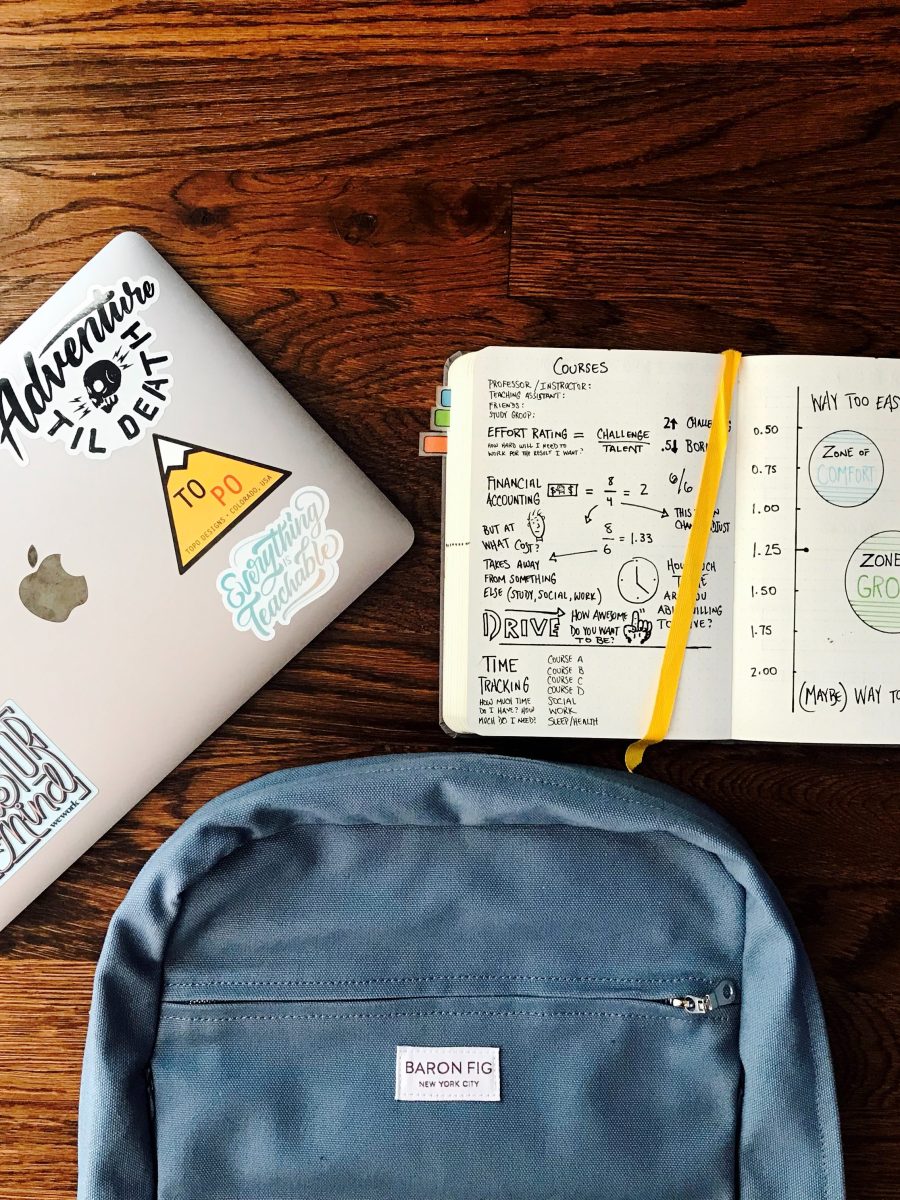 Adventure
TIL DEATH
TO
PO
TOPO DESIGNS • COLORADO, USA
Everything
IS
Teachable
mind
wework
COURSES
PROFESSOR / INSTRUCTOR:
TEACHING ASSISTANT:
FRIENDS:
STUDY GROUP:
EFFORT RATING = CHALLENGE
TALENT
HOW HARD WILL I NEED TO
WORK FOR THE RESULT I WANT?
2↑
.5↓
FINANCIAL
ACCOUNTING
= 8/4 = 2
6/6
BUT AT
WHAT COST?
8/6 = 1.33
THIS
TAKES AWAY
FROM SOMETHING
ELSE (STUDY, SOCIAL, WORK)
DRIVE
HOW AWESOME
DO YOU WANT
TO BE?
TIME
TRACKING
HOW MUCH TIME
DO I HAVE? HOW
MUCH DO I NEED?
COURSE A
COURSE B
COURSE C
COURSE D
SOCIAL
WORK
SLEEP/HEALTH
WAY TOO EAS
0.50
0.75
1.00
1.25
1.50
1.75
2.00
ZONE OF
COMFORT
ZONE
GRO
(MAYBE) WAY TO
BARON FIG
NEW YORK CITY